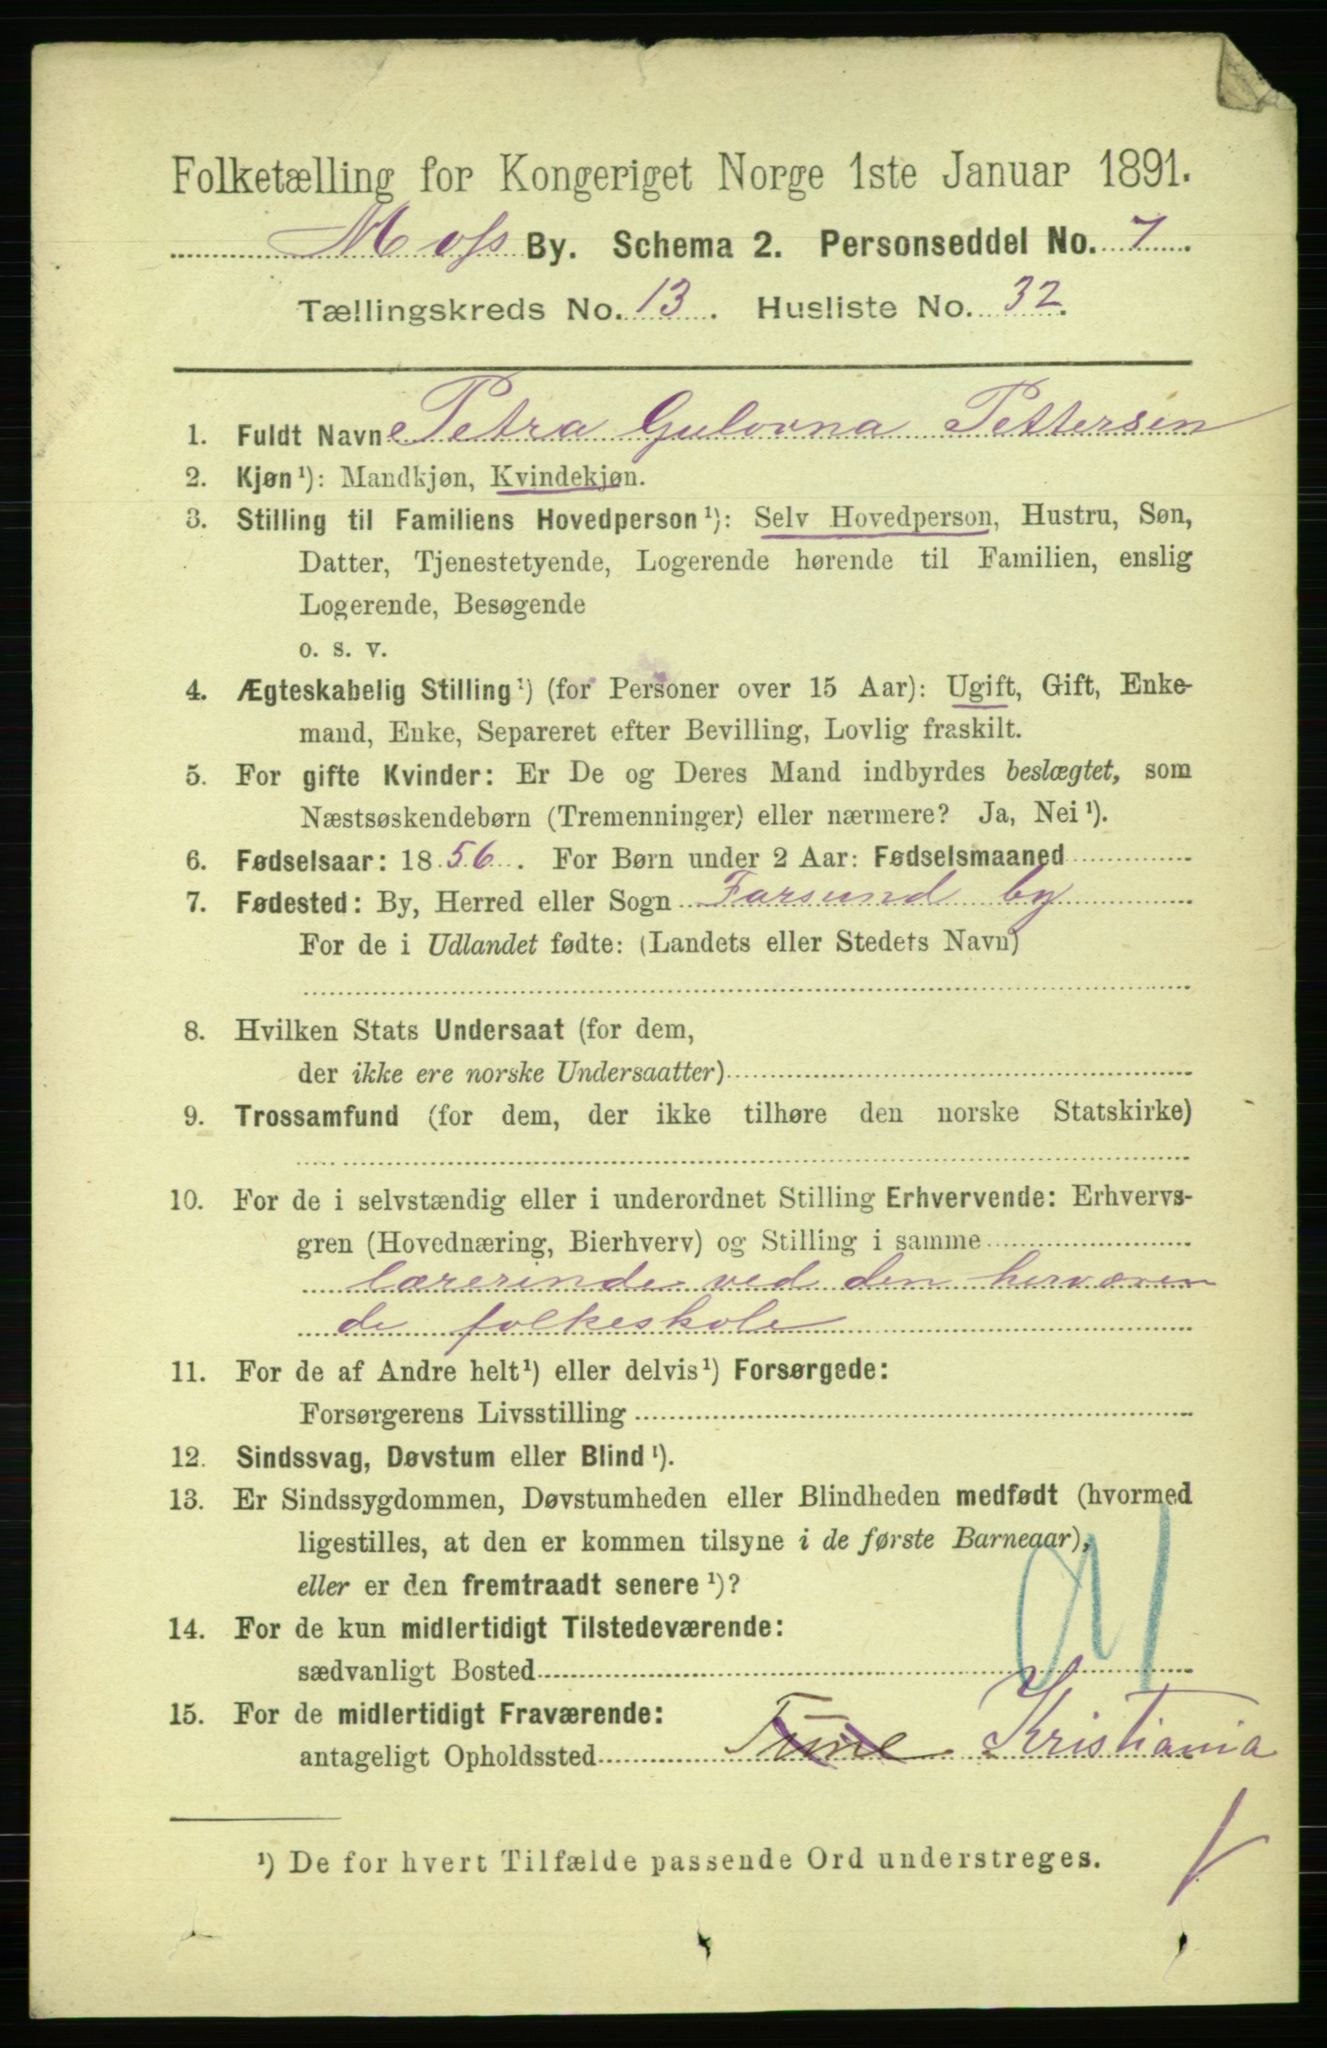 Folketælling for Kongeriget Norge 1ste Januar 1891.
Moss By. Schema 2. Personseddel No. 7.
Tællingskreds No. 13. Husliste No. 32.
1. Fuldt Navn Petra Gulovna Pettersen
2. Kjøn¹): Mandkjøn, Kvindekjøn.
3. Stilling til Familiens Hovedperson¹): Selv Hovedperson, Hustru, Søn,
Datter, Tjenestetyende, Logerende hørende til Familien, enslig
Logerende, Besøgende
o. s. v.
4. Ægteskabelig Stilling¹) (for Personer over 15 Aar): Ugift, Gift, Enke-
mand, Enke, Separeret efter Bevilling, Lovlig fraskilt.
5. For gifte Kvinder: Er De og Deres Mand indbyrdes beslægtet, som
Næstsøskendebørn (Tremenninger) eller nærmere? Ja, Nei¹).
6. Fødselsaar: 1856. For Børn under 2 Aar: Fødselsmaaned
7. Fødested: By, Herred eller Sogn Farsund by
For de i Udlandet fødte: (Landets eller Stedets Navn)
8. Hvilken Stats Undersaat (for dem,
der ikke ere norske Undersaatter)
9. Trossamfund (for dem, der ikke tilhøre den norske Statskirke)
10. For de i selvstændig eller i underordnet Stilling Erhvervende: Erhvervs-
gren (Hovednæring, Bierhverv) og Stilling i samme
lærerinde ved den herværen
de folkeskole
11. For de af Andre helt¹) eller delvis¹) Forsørgede:
Forsørgerens Livsstilling
12. Sindssvag, Døvstum eller Blind¹).
13. Er Sindssygdommen, Døvstumheden eller Blindheden medfødt (hvormed
ligestilles, at den er kommen tilsyne i de første Barneaar),
eller er den fremtraadt senere¹)?
14. For de kun midlertidigt Tilstedeværende:
sædvanligt Bosted
15. For de midlertidigt Fraværende:
antageligt Opholdssted Tune Kristiania
¹) De for hvert Tilfælde passende Ord understreges.